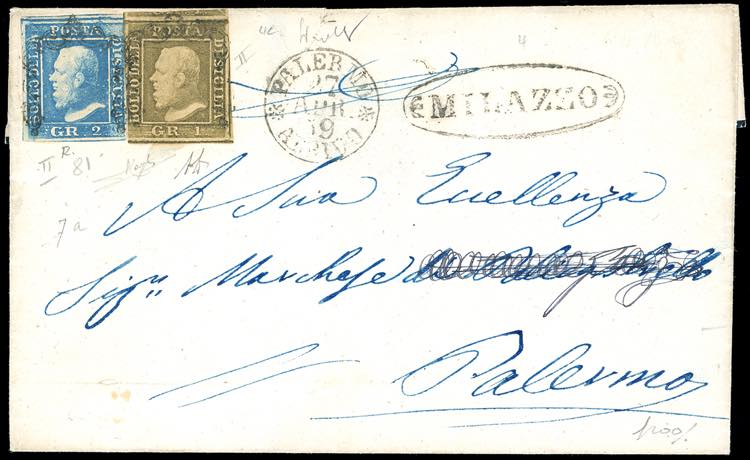 POSTA
BOLLO DELLA
DI SICILIA
GR. 2
POSTA
BOLLO DELLA
DI SICILIA
GR. 1
PALERMO
27
APR
59
ARRIVO
MILAZZO
4
II
II R. 81
7a
A Sua Eccellenza
Sig.r Marchese
Palermo